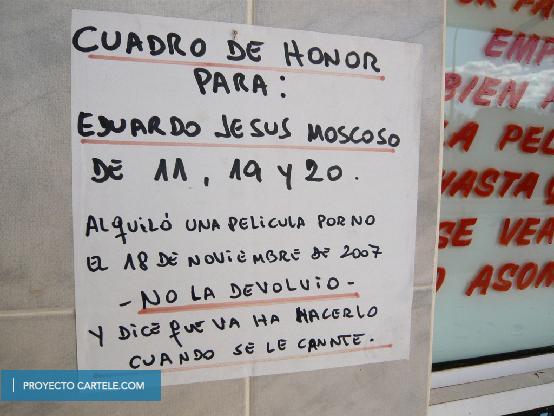 CUADRO DE HONOR
PARA:
EDUARDO JESUS MOSCOSO
DE 11, 19 Y 20.
ALQUILÓ UNA PELICULA PORNO
EL 18 DE NOVIEMBRE DE 2007
- NO LA DEVOLVIO -
Y DICE QUE VA HA HACERLO
CUANDO SE LE CANNTE.
EMP
BIEN A
LA PEL
HASTA
SE VEA
ASOM
PROYECTO CARTELE.COM